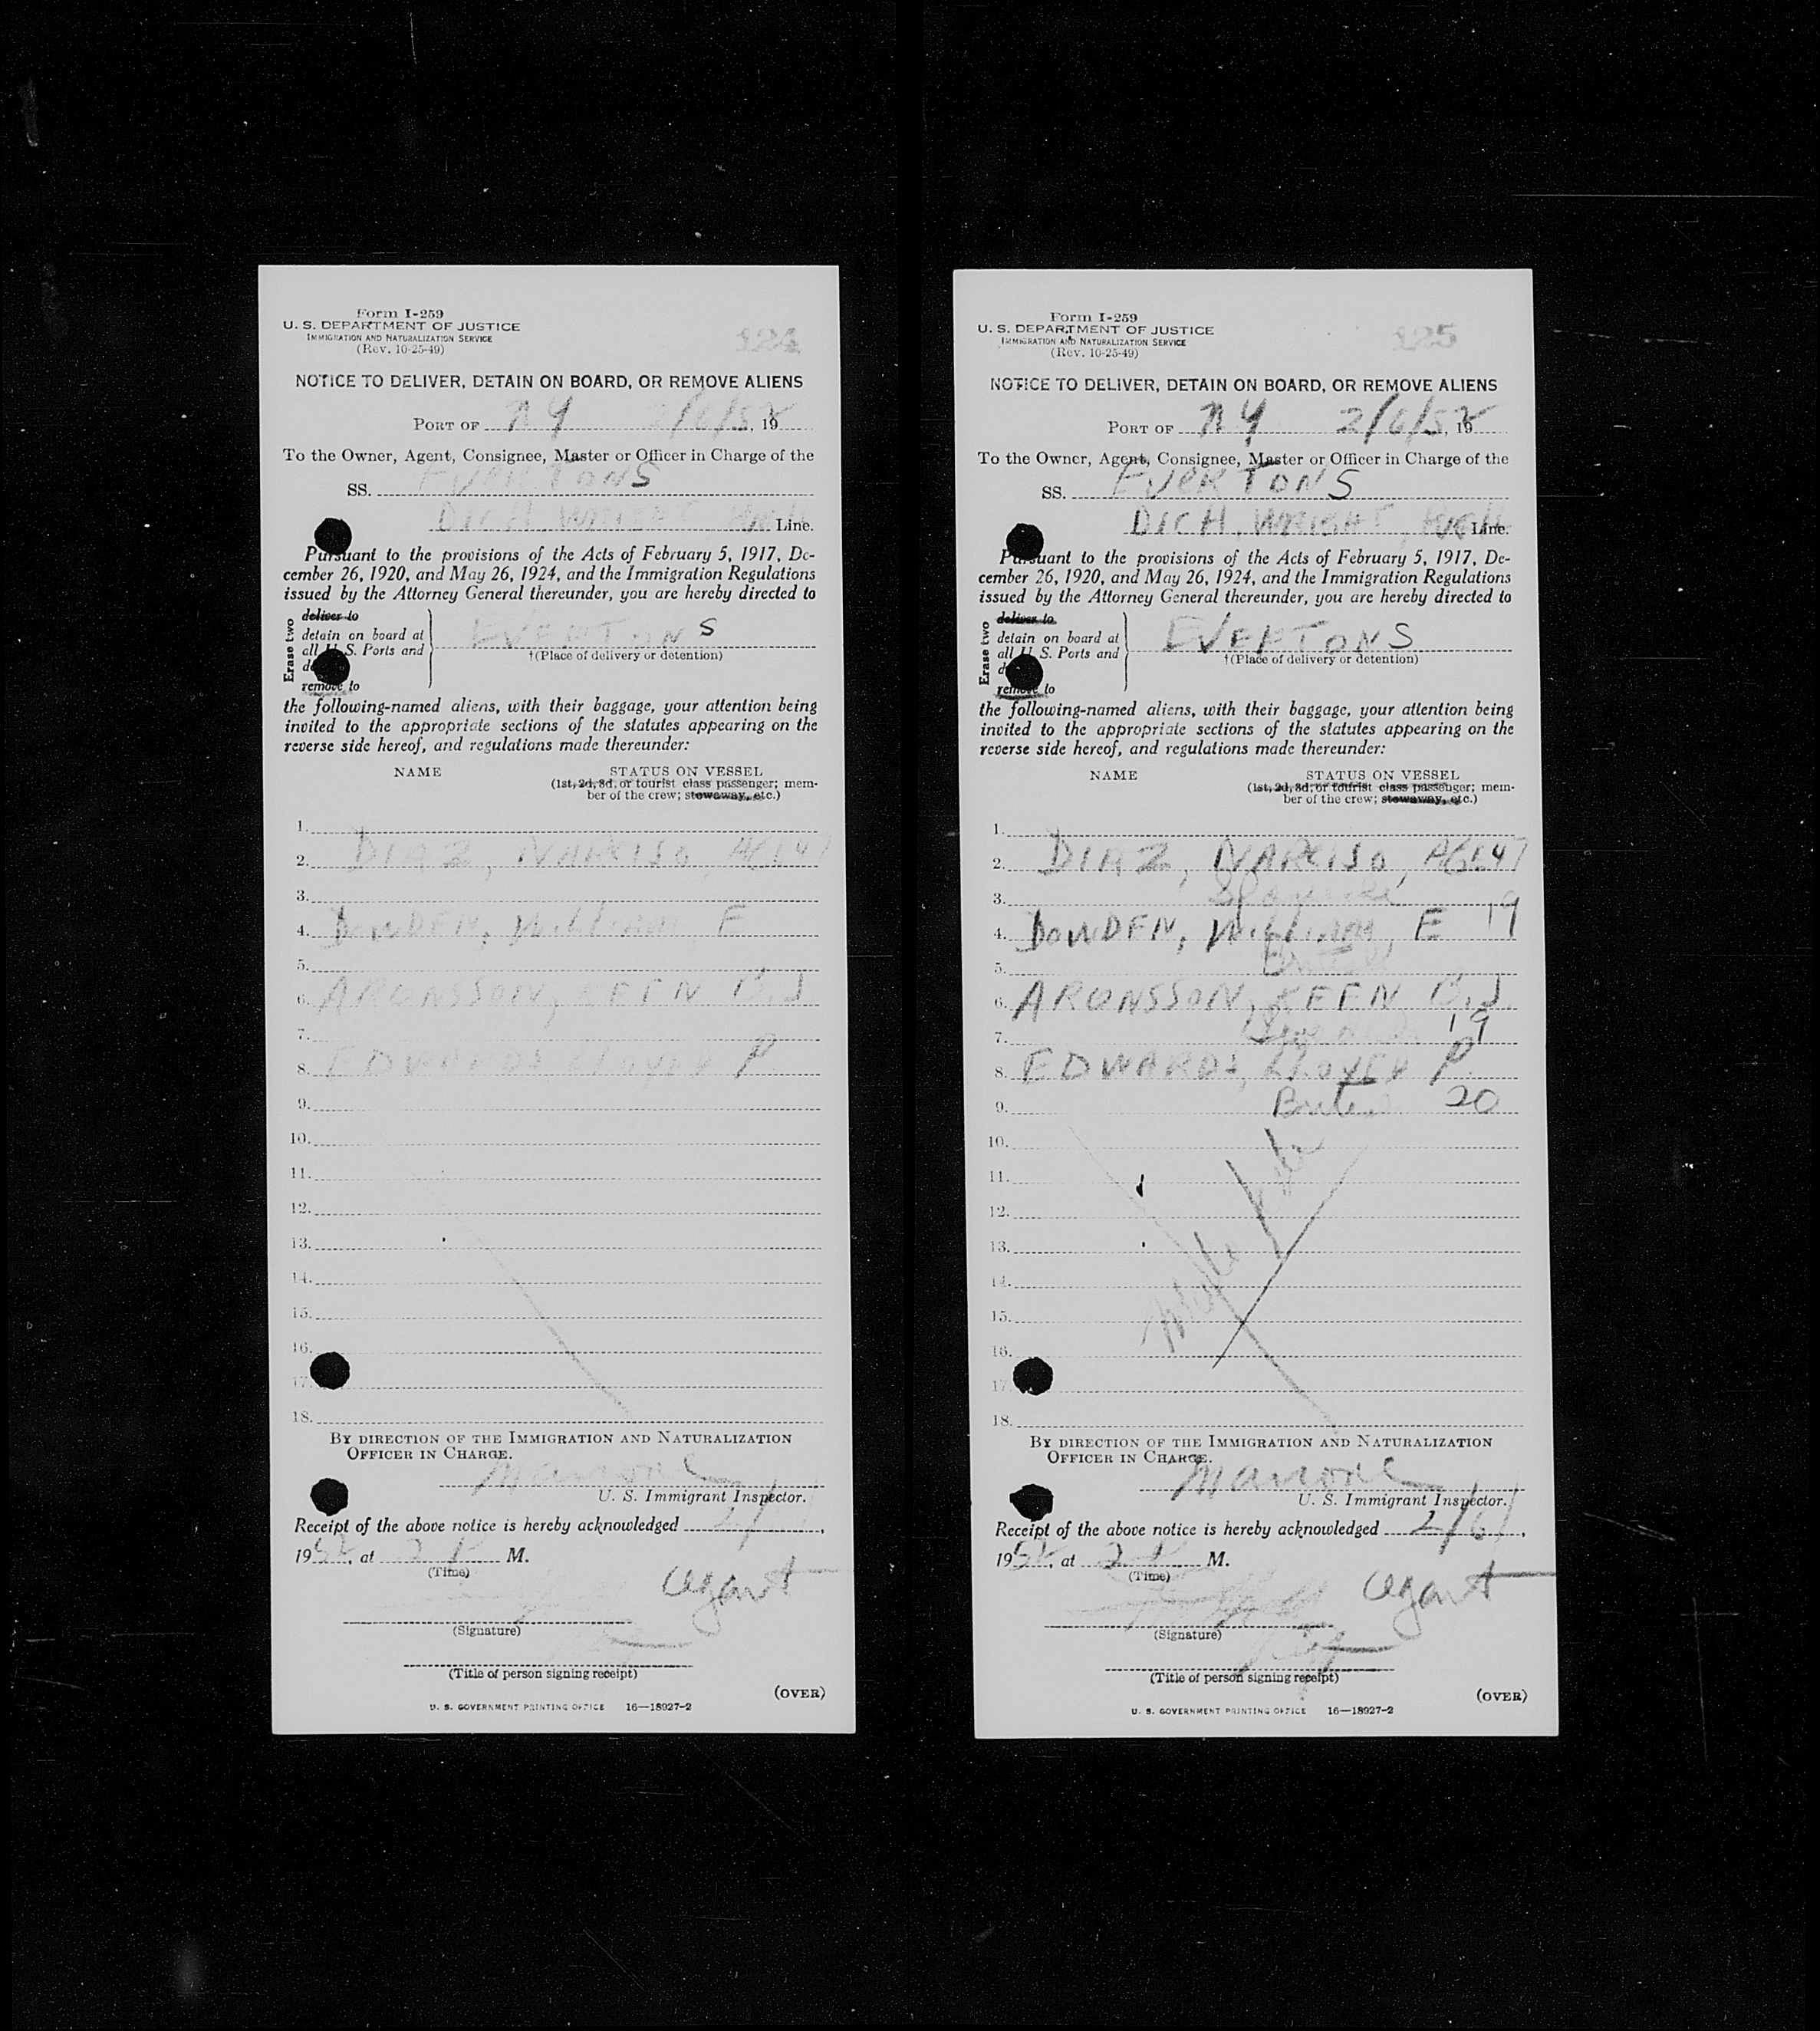 Form I-259
U. S. DEPARTMENT OF JUSTICE
IMMIGRATION AND NATURALIZATION SERVICE
(Rev. 10-25-49)
124
NOTICE TO DELIVER, DETAIN ON BOARD, OR REMOVE ALIENS
PORT OF NY 2/6/52, 19
To the Owner, Agent, Consignee, Master or Officer in Charge of the
SS. EVERTONS
DICH. WRIGHT Line.
Pursuant to the provisions of the Acts of February 5, 1917, De-
cember 26, 1920, and May 26, 1924, and the Immigration Regulations
issued by the Attorney General thereunder, you are hereby directed to
Erase two
deliver to
detain on board at
all U. S. Ports and
remove to
EVERTONS
†(Place of delivery or detention)
the following-named aliens, with their baggage, your attention being
invited to the appropriate sections of the statutes appearing on the
reverse side hereof, and regulations made thereunder:
NAME STATUS ON VESSEL
(1st, 2d, 3d, or tourist class passenger; mem-
ber of the crew; stowaway, etc.)
1.
2. DIAZ, NARCISO, AGE 47
3.
4. DOWDEN, William E
5.
6. ARONSSON, KEEN B.J
7.
8. EDWARDS P
9.
10.
11.
12.
13.
14.
15.
16.
17.
18.
BY DIRECTION OF THE IMMIGRATION AND NATURALIZATION
OFFICER IN CHARGE.
U. S. Immigrant Inspector.
Receipt of the above notice is hereby acknowledged 2/
1952, at 2 P M.
(Time)
agent
(Signature)
(Title of person signing receipt)
(OVER)
U. S. GOVERNMENT PRINTING OFFICE 16—18927-2
Form I-259
U. S. DEPARTMENT OF JUSTICE
IMMIGRATION AND NATURALIZATION SERVICE
(Rev. 10-25-49)
125
NOTICE TO DELIVER, DETAIN ON BOARD, OR REMOVE ALIENS
PORT OF NY 2/6/52, 19
To the Owner, Agent, Consignee, Master or Officer in Charge of the
SS. EVERTONS
DICH. WRIGHT Line.
Pursuant to the provisions of the Acts of February 5, 1917, De-
cember 26, 1920, and May 26, 1924, and the Immigration Regulations
issued by the Attorney General thereunder, you are hereby directed to
Erase two
deliver to
detain on board at
all U. S. Ports and
remove to
EVERTONS
†(Place of delivery or detention)
the following-named aliens, with their baggage, your attention being
invited to the appropriate sections of the statutes appearing on the
reverse side hereof, and regulations made thereunder:
NAME STATUS ON VESSEL
(1st, 2d, 3d, or tourist class passenger; mem-
ber of the crew; stowaway, etc.)
1.
2. DIAZ, NARCISO, AGE 47
3.
4. DOWDEN, William, E 19
5.
6. ARONSSON, KEEN B.J.
7. 19
8. EDWARDS, P.
9. 20
10.
11.
12.
13.
14.
15.
16.
17.
18.
BY DIRECTION OF THE IMMIGRATION AND NATURALIZATION
OFFICER IN CHARGE.
U. S. Immigrant Inspector.
Receipt of the above notice is hereby acknowledged 2/6/,
1952, at 2 P M.
(Time)
agent
(Signature)
(Title of person signing receipt)
(OVER)
U. S. GOVERNMENT PRINTING OFFICE 16—18927-2